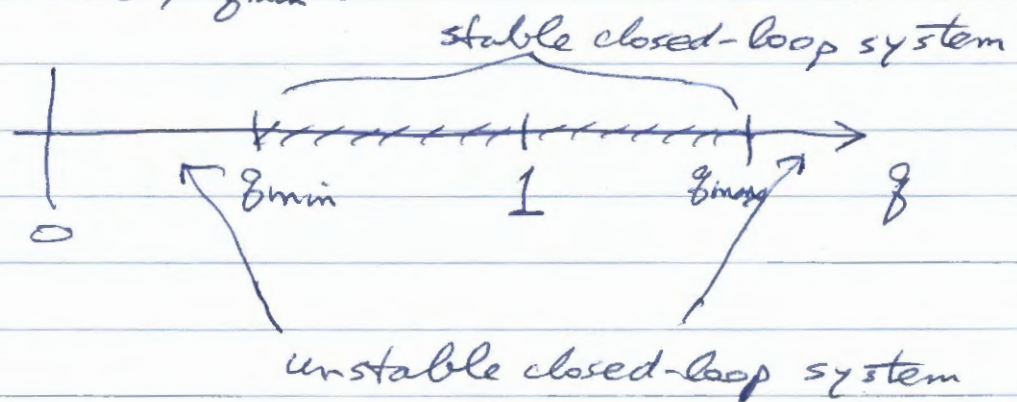 stable closed-loop system
0 qmin 1 qmax q
unstable closed-loop system